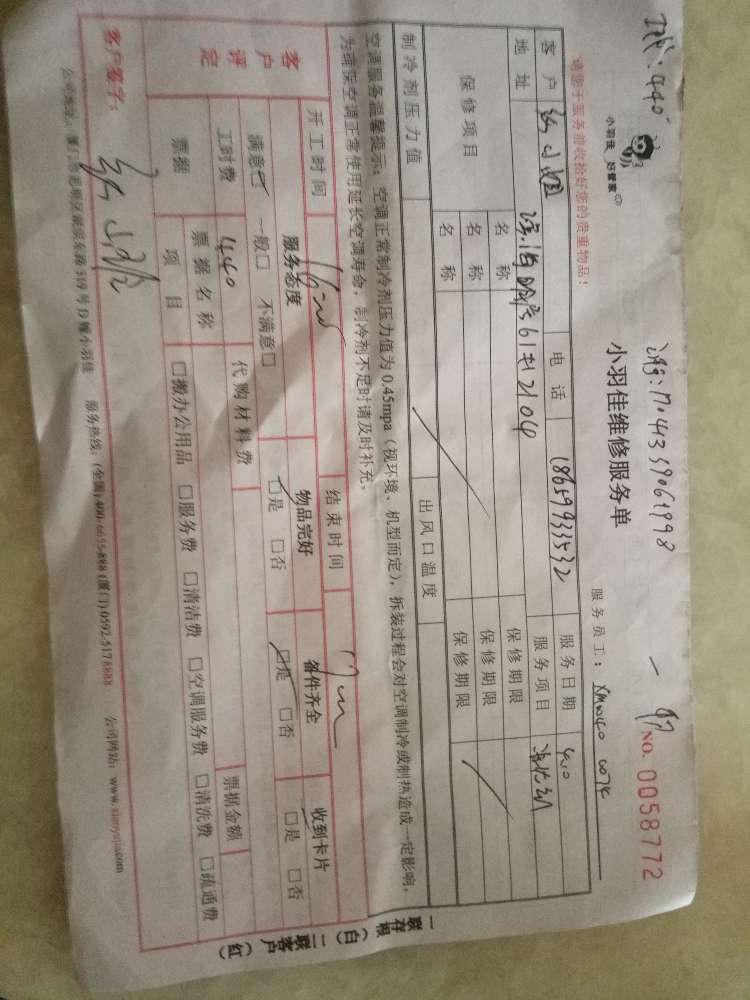 440
小羽佳 好管家
小羽佳维修服务单
NO. 0058772
请您于服务前收拾好您的贵重物品!
服务员工:
客户 小姐 电话 18659933532 服务日期
地址 61#2104 服务项目
保修项目 名称 保修期限
名称 保修期限
名称 保修期限
制冷剂压力值 出风口温度
空调服务温馨提示:空调正常制冷剂压力值为0.45mpa(视环境、机型而定),拆装过程会对空调制冷或制热造成一定影响,
为确保空调正常使用延长空调寿命,制冷剂不足时请及时补充。
开工时间 结束时间
客户评定 服务态度 物品完好 备件齐全 收到卡片
满意□ 一般□ 不满意□ □是 □否 □是 □否 □是 □否
工时费 440 代购材料费
票据 票据名称 票据金额
项目 □搬办公用品 □服务费 □清洁费 □空调服务费 □清洗费 □疏通费
客户签字:
公司地址:厦门市思明区 519号D幢小羽佳 服务热线:(全国)400-6655-888 (厦门)0592-5178888 公司网站:www.xiaoyujia.com
一联存根(白) 二联客户(红)